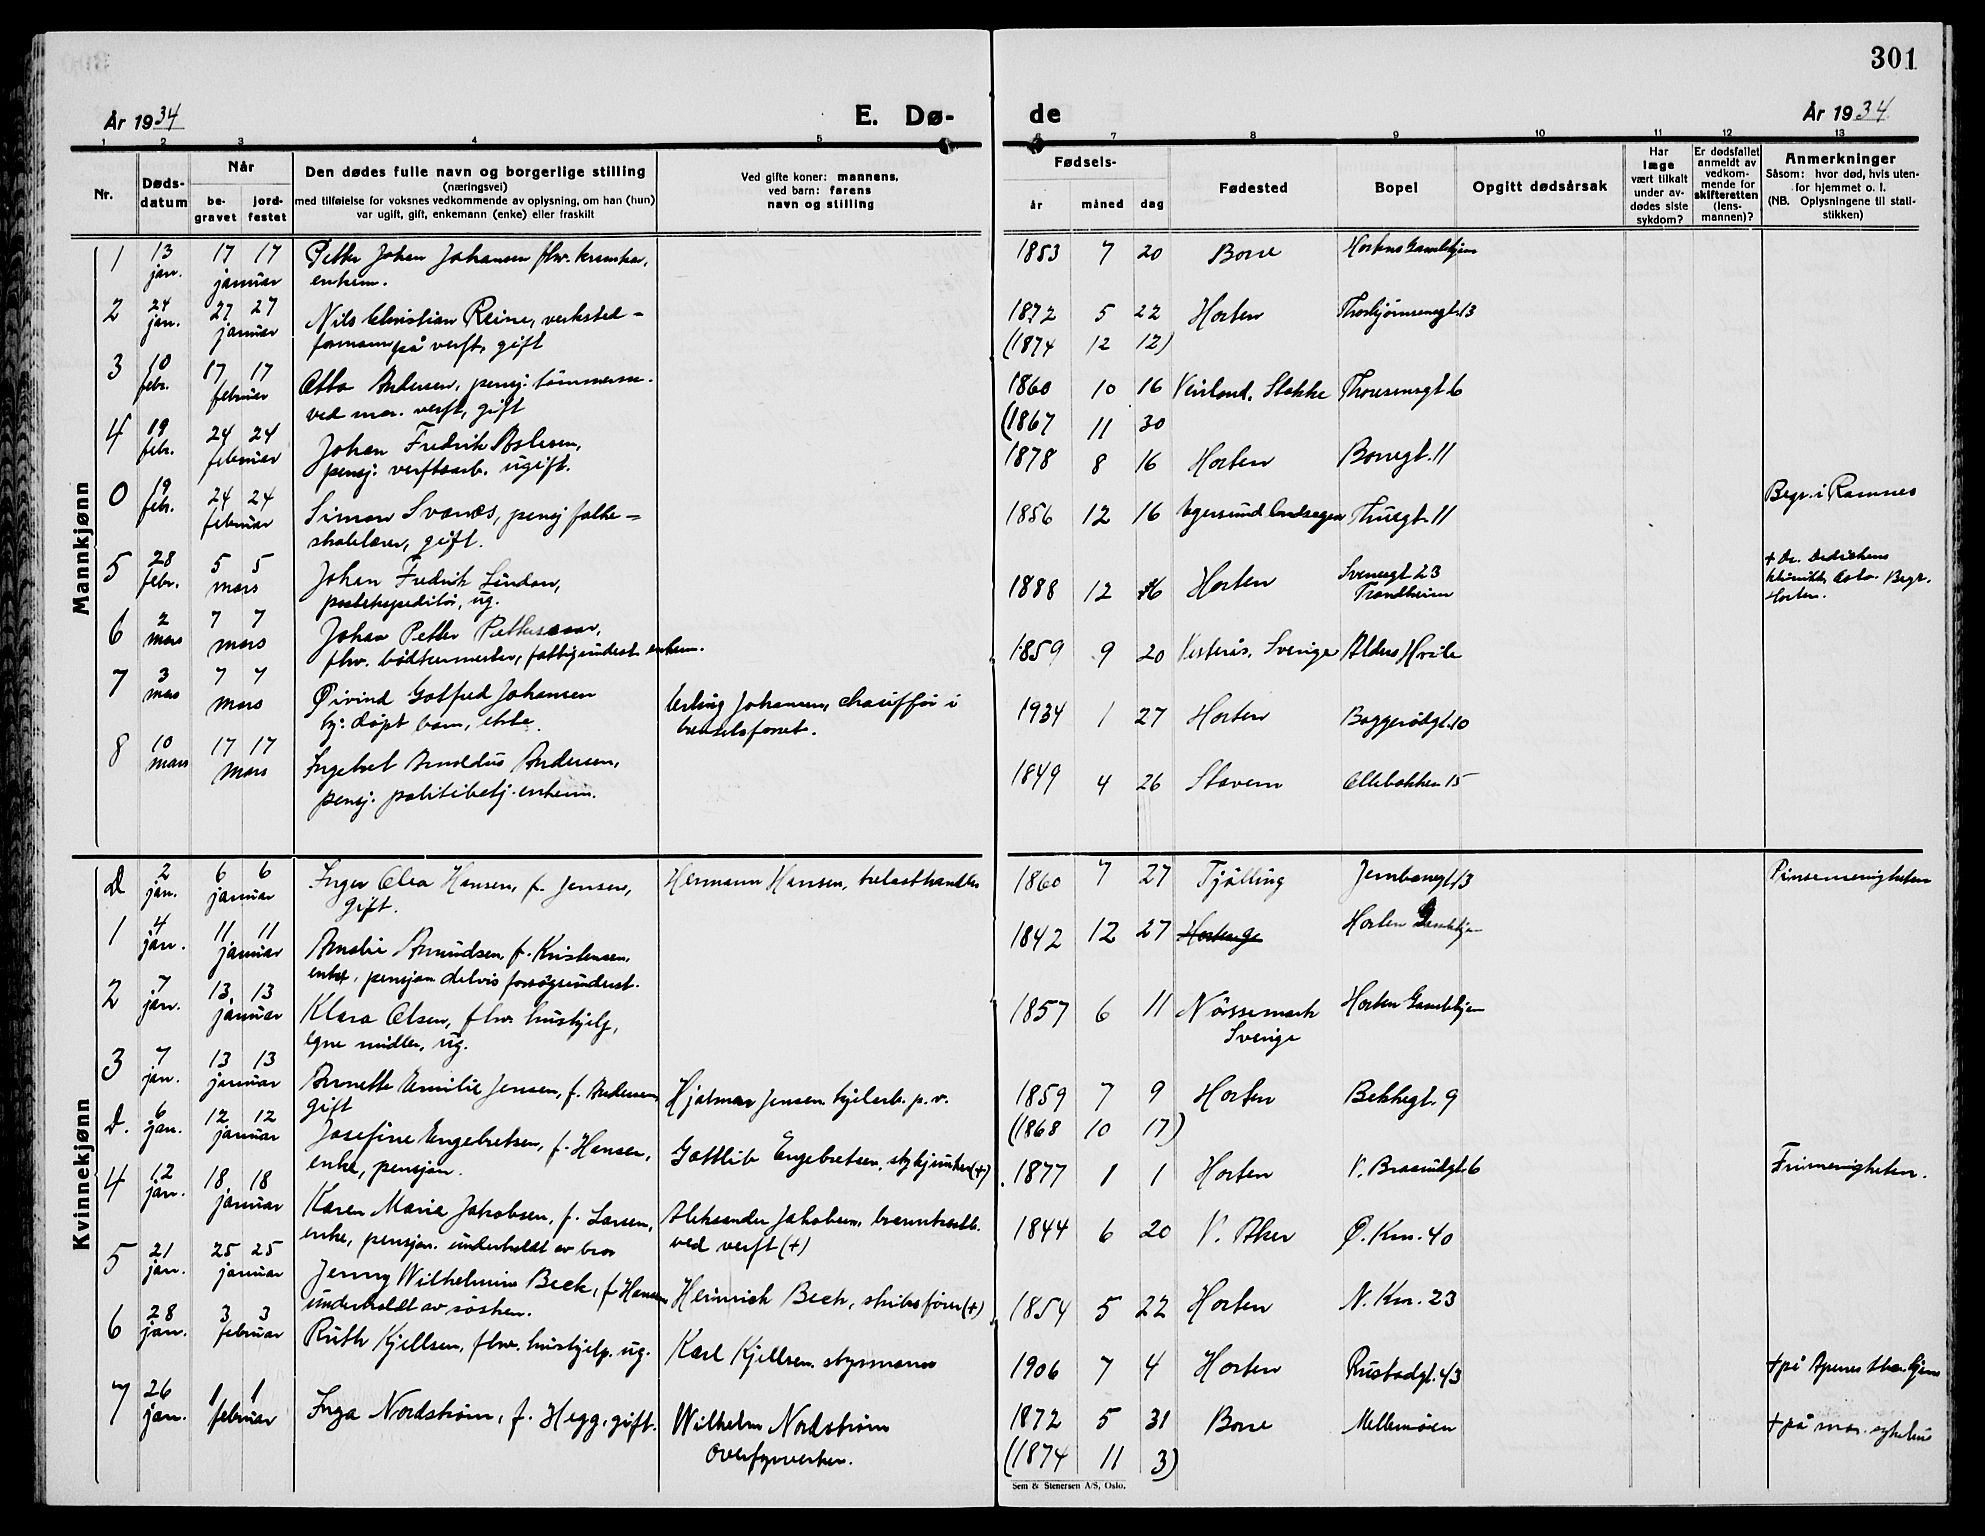 301
År 1934
E. Dø-
de
År 1934
1 2 3 4 5 6 7 8 9 10 11 12 13
Nr.
Døds-
datum
Når
be-
gravet
jord-
festet
Den dødes fulle navn og borgerlige stilling
(næringsvei)
med tilføielse for voksnes vedkommende av oplysning, om han (hun)
var ugift, gift, enkemann (enke) eller fraskilt
Ved gifte koner: mannens,
ved barn: farens
navn og stilling
Fødsels-
år måned dag
Fødested
Bopel
Opgitt dødsårsak
Har
læge
vært tilkalt
under av-
dødes siste
sykdom?
Er dødsfallet
anmeldt av
vedkom-
mende for
skifteretten
(lens-
mannen)?
Anmerkninger
Såsom: hvor død, hvis uten-
for hjemmet o. l.
(NB. Oplysningene til stati-
stikken)
Mannkjønn
1 13 jan. 17 17 januar Petter Johan Johansen fhv.
enkem.
1853 7 20 Borre Hortens Gamlehjem
2 24 jan. 27 27 januar Nils Christian Reine, verksted-
formann på verft, gift
1872 5 22 Horten Thorbjørnsensgt. 13
(1874 12 12)
3 10 febr. 17 17 februar Otto Andersen, pensj. tømmerm.
ved mar. verft, gift
1860 10 16 Stokke Thoresensgt 6
(1867 11 30
4 19 febr. 24 24 februar Johan Fredrik Aslesen,
pensj. verftsarb. ugift.
1878 8 16 Horten Borregt. 11
0 19 febr. 24 24 februar Simon Svanes, pensj folke-
skolelærer, gift.
1856 12 16 Egersund landsogn Thuegt. 11 Begr. i Ramnes
5 28 febr. 5 5 mars Johan Fredrik Lindan,
postekspeditør, ug.
1888 12 Horten Svensgt 23
Trondheim
+ Dr. Dedichens
klinikk, Oslo. Begr.
Horten.
6 2 mars 7 7 mars Johan Petter Pettersson,
fhv. bødtkermester, fattigunderst. enkem.
1859 9 20 Vesterås, Sverige Alders Hvile
7 3 mars 7 7 mars Øivind Gotfred Johansen
hj: døpt barn, ekte.
Erling Johansen, chauffør i
1934 1 27 Horten Baggerødgt. 10
8 10 mars 17 17 mars Ingebret Arnoldus Andersen,
pensj. politibetj. enkem.
1849 4 26 Stavern Ollebakken 15
Kvinnekjønn
D 2 jan. 6 6 januar Inger Olea Hansen, f. Jensen,
gift.
Hermann Hansen, trelasthandler
1860 7 27 Tjølling Jernbanegt. 13 Pinsemenigheten
1 4 jan. 11 11 januar Amalie Amundsen, f. Kristensen,
enke, pensjon delvis forsørgsunderst.
1842 12 27 Horten Gamlehjem
2 7 jan. 13 13 januar Klara Olsen, fhv. hushjelp,
egne midler, ug.
1857 6 11 Nössemark
Sverige
Horten Gamlehjem
3 7 jan. 13 13 januar Annette Emilie Jensen, f. Andersen,
gift
Hjalmar Jensen kjelarb. p. v.
1859 7 9 Horten Bekkegt. 9
(1868 10 17)
D. 6 jan. 12 12 januar Josefine Engebretsen, f. Hansen,
enke, pensjon.
Gottlib Engebretsen, stykjunker (+)
1877 1 1 Horten V. Braarudgt. 6 Frimenigheten.
4 12 jan. 18 18 januar Karen Marie Jakobsen, f. Larsen,
enke, pensjon. underholdt av bror
Aleksander Jakobsen,
ved verft (+)
1844 6 20 V. Aker Ø. Km. 40
5 21 jan. 25 25 januar Jenny Wilhelmine Beck, f. Hansen
underholdt av søsken.
Heinrich Beck, skibsfører (+)
1854 5 22 Horten N. Km. 23
6 28 jan. 3 3 februar Ruth Kjellsen, fhv. hushjelp. ug.
Karl Kjellsen styrmann
1906 7 4 Horten Rustadgt. 43 + på
7 26 jan. 1 1 februar Inga Nordstrøm, f. Hegg, gift.
Wilhelm Nordstrøm
overfyrverker.
1872 5 31 Borre Mellemøen + på mar. sykehus
(1874 11 3)
Sem & Stenersen A/S, Oslo.